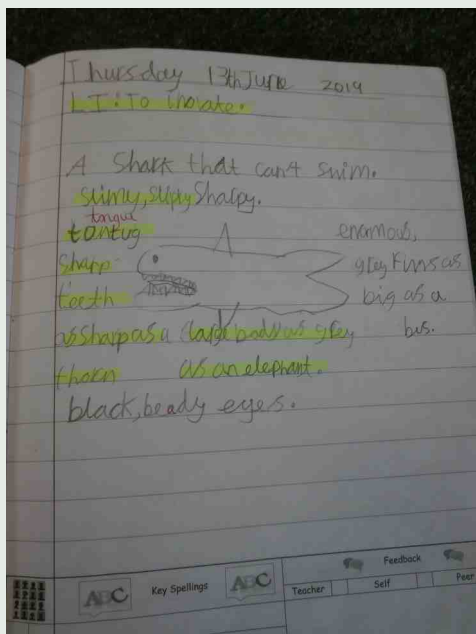 Thursday 13th June 2019
LI: To inovate.
A Shark that can4 swim.
slimy, slipy Sharpy.
tongue
tontug
enarmous,
sharp
grey Finsas
teeth
big as a
assharpasa large bodyas grey bus.
thorn as an elephant.
black, beady eyes.
ABC Key Spellings ABC
Feedback
Teacher Self Peer